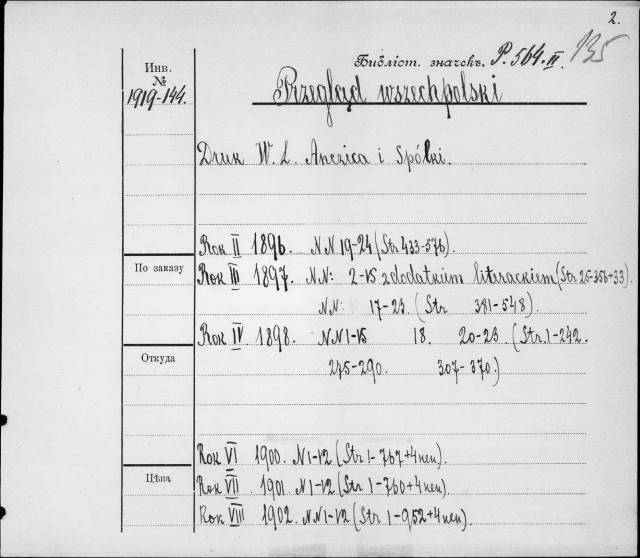 2.
Библіот. значокъ. P. 564.II. 135
Инв.
№
1919-144.
Przegląd wszechpolski
Druk W. L. Anczica i Spólki.
Rok II 1896. NN 19-24 (Str 433-576).
По заказу
Rok III 1897. NN: 2-15 z dodatkiem literackiem (Str 25-356+33).
NN: 17-23. (Str 381-548).
Rok IV 1898. NN 1-15 18. 20-23. (Str. 1-242.
Откуда
275-290. 307-370.)
Rok VI 1900. N 1-12 (Str 1-767+4nen).
Цѣна
Rok VII 1901. N 1-12 (Str 1-760+4nen).
Rok VIII 1902. NN 1-12 (Str 1-952+4nen).